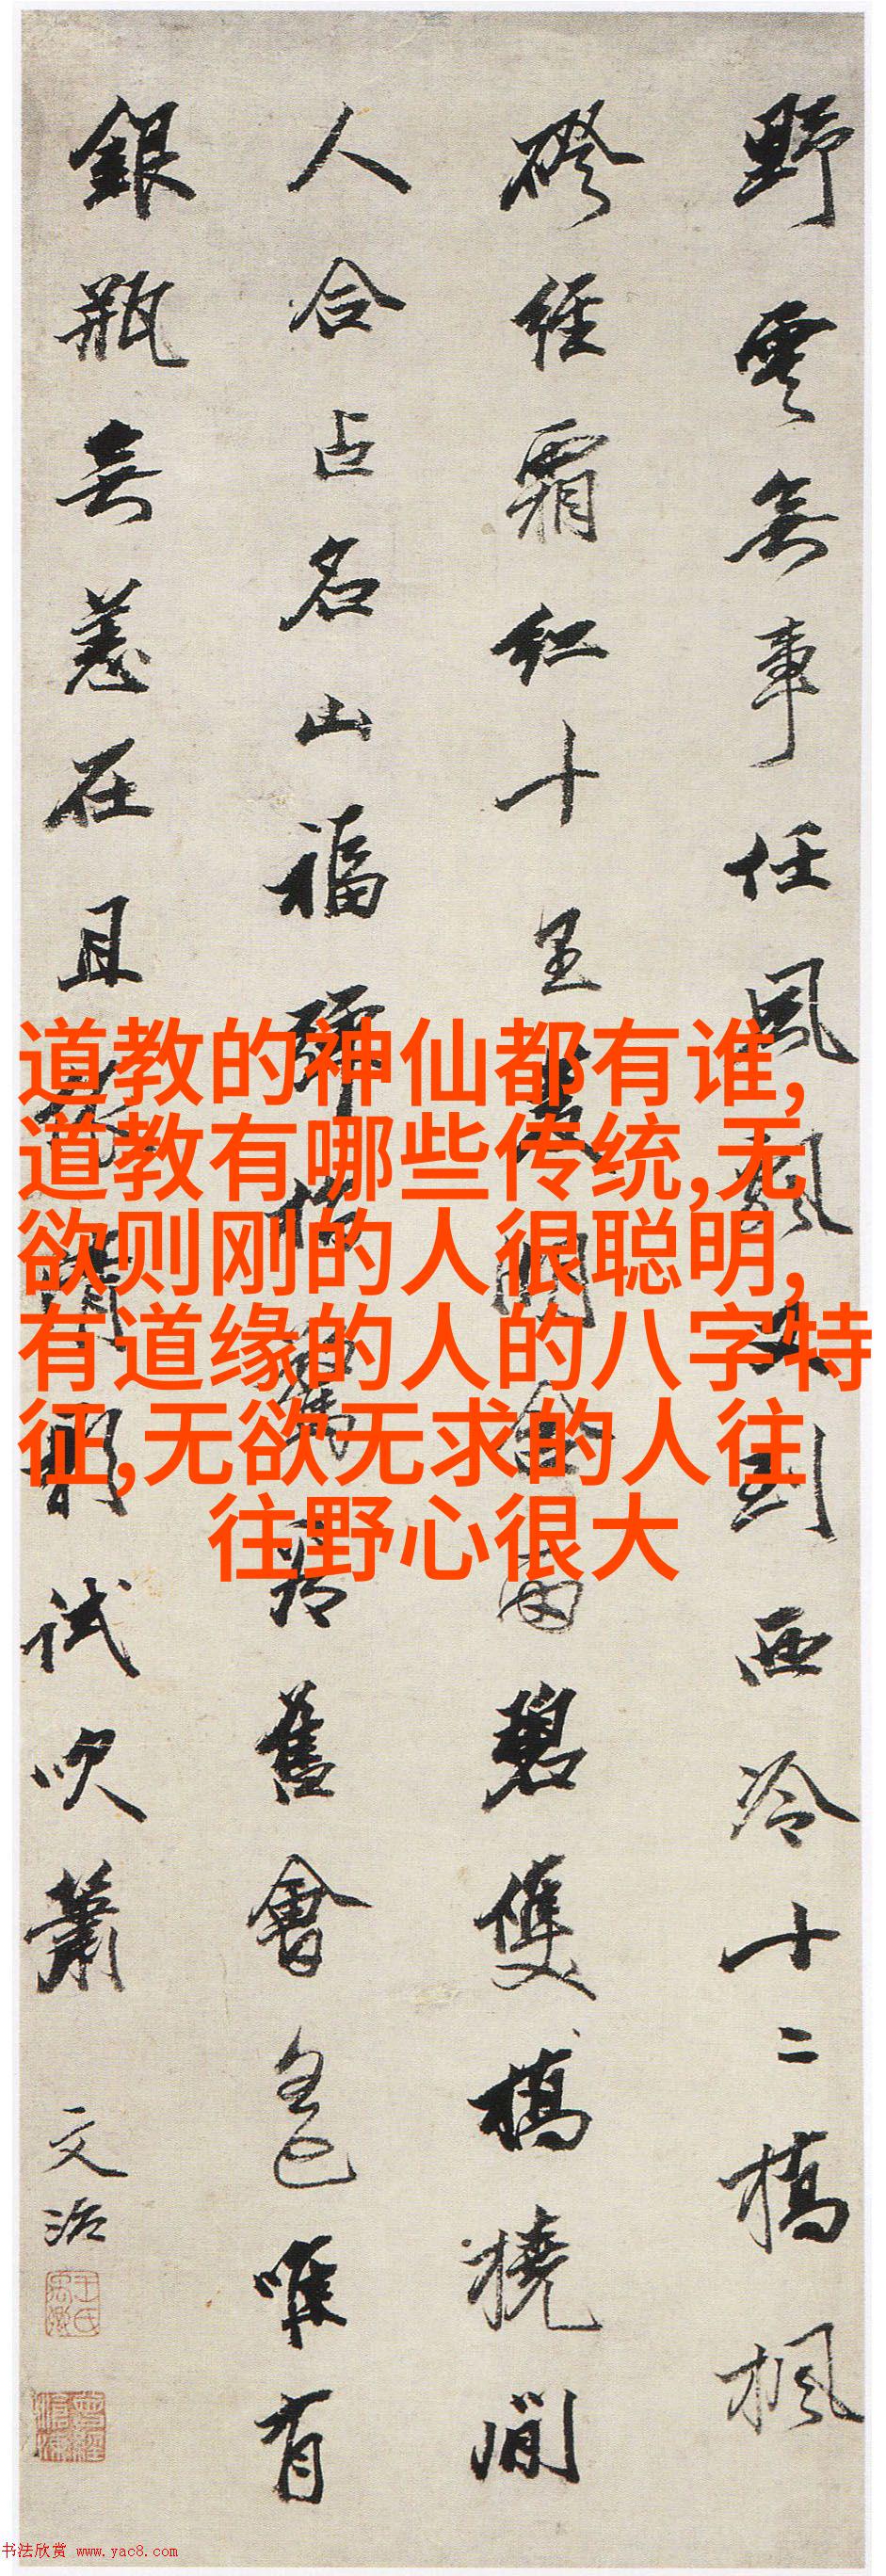 野雲無事任風飄又到西泠十二橋楓
磴經霜紅十里湖含雨碧雙橋橈間
人合占名山福舊會唯有
銀瓶無恙在且影試吹簫
文治
道教的神仙都有谁,
道教有哪些传统,无
欲则刚的人很聪明,
有道缘的人的八字特
征,无欲无求的人往
往野心很大
书法欣赏 www.yac8.com